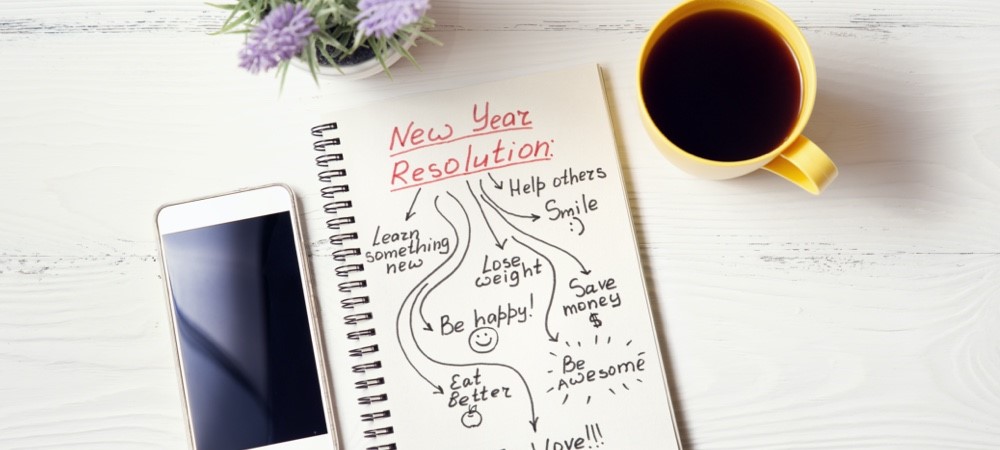 New Year
Resolution:
Help others
Smile
:)
Learn
something
new
Lose
weight
Save
money
$
Be happy!
Be
Awesome
Eat
Better
love!!!